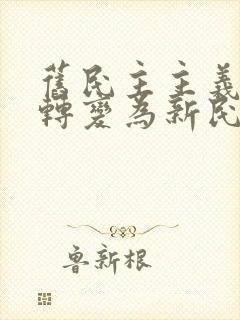 舊民主主義
轉變為新民
魯新根